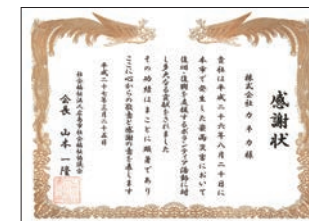 感謝状
株式会社カネカ様
貴社は平成二十六年八月二十日に
本市で発生した豪雨災害において
復旧・復興を支援するボランティア活動に対
し多大なる貢献をされました
その功績はまことに顕著であり
ここに心からの敬意と感謝の意を表します
平成二十七年三月二十五日
社会福祉法人広島市社会福祉協議会
会長 山本一隆